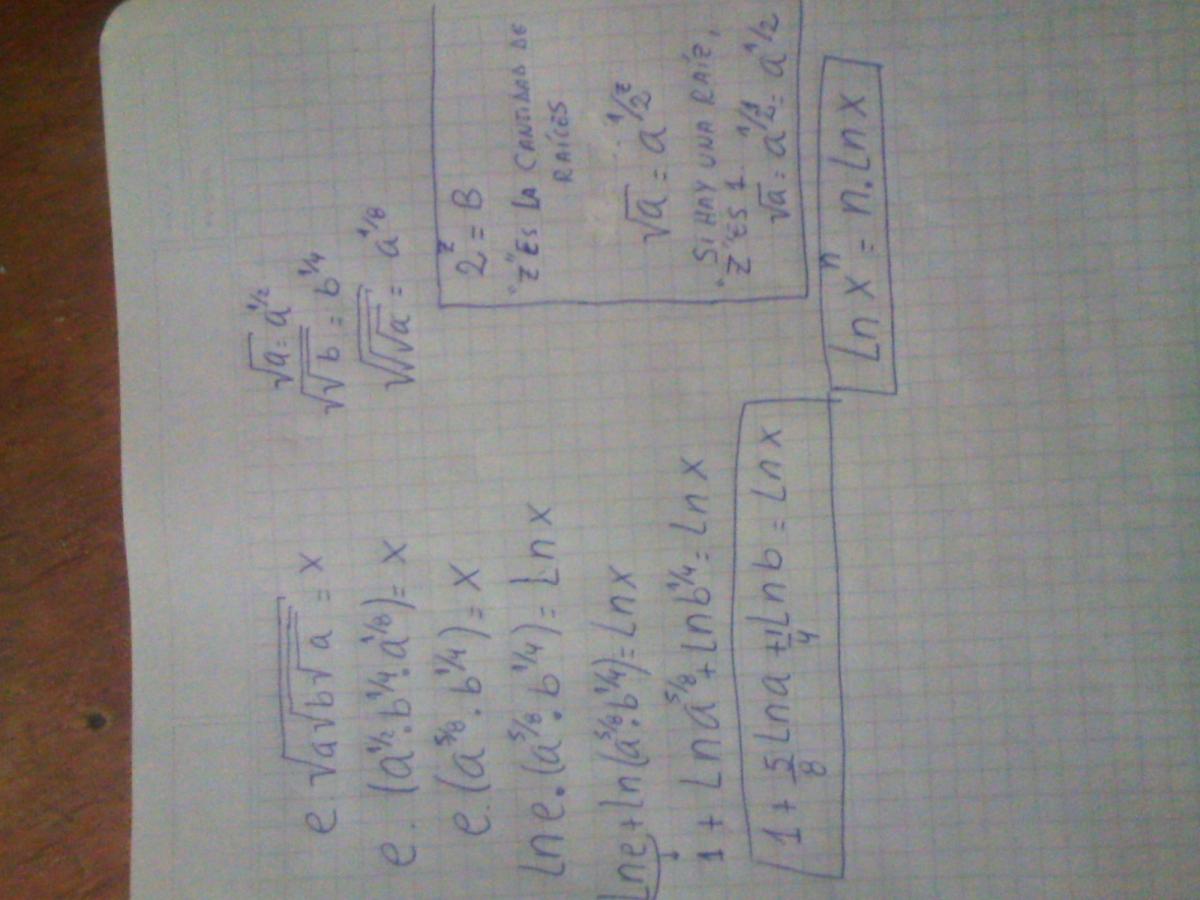 e.√(a√(b√a)) = x
e.(a^1/2.b^1/4.a^1/8)=x
e.(a^5/8.b^1/4)=x
Ln e.(a^5/8.b^1/4)=Ln x
Lne+Ln(a^5/8.b^1/4)=Lnx
1+Lna^5/8+Lnb^1/4=Lnx
1+5/8Lna+1/4Lnb=Lnx
√a=a^1/2
√√b=b^1/4
√√√a=a^1/8
2^z=8
"z" ES LA CANTIDAD DE
RAÍCES
√a=a^1/2^z
SI HAY UNA RAÍZ,
"Z" ES 1
√a=a^1/2^1=a^1/2
Ln x^n=n.Ln x